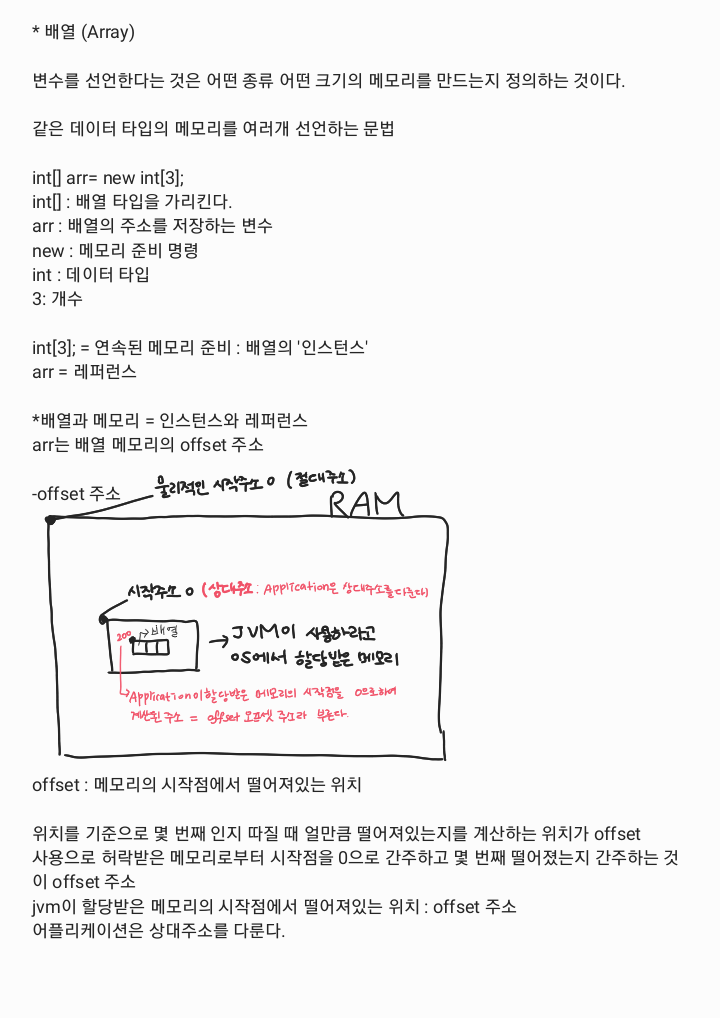 * 배열 (Array)
변수를 선언한다는 것은 어떤 종류 어떤 크기의 메모리를 만드는지 정의하는 것이다.
같은 데이터 타입의 메모리를 여러개 선언하는 문법
int[] arr= new int[3];
int[] : 배열 타입을 가리킨다.
arr : 배열의 주소를 저장하는 변수
new : 메모리 준비 명령
int : 데이터 타입
3: 개수
int[3]; = 연속된 메모리 준비 : 배열의 '인스턴스'
arr = 레퍼런스
*배열과 메모리 = 인스턴스와 레퍼런스
arr는 배열 메모리의 offset 주소
-offset 주소
물리적인 시작주소 0 (절대주소)
RAM
시작주소 0 (상대주소 : Application은 상대주소를 다룬다)
200
배열
JVM이 사용하라고
OS에서 할당받은 메모리
Application이 할당받은 메모리의 시작점을 0으로하여
계산된 주소 = offset 오프셋 주소라 부른다.
offset : 메모리의 시작점에서 떨어져있는 위치
위치를 기준으로 몇 번째 인지 따질 때 얼만큼 떨어져있는지를 계산하는 위치가 offset
사용으로 허락받은 메모리로부터 시작점을 0으로 간주하고 몇 번째 떨어졌는지 간주하는 것
이 offset 주소
jvm이 할당받은 메모리의 시작점에서 떨어져있는 위치 : offset 주소
어플리케이션은 상대주소를 다룬다.